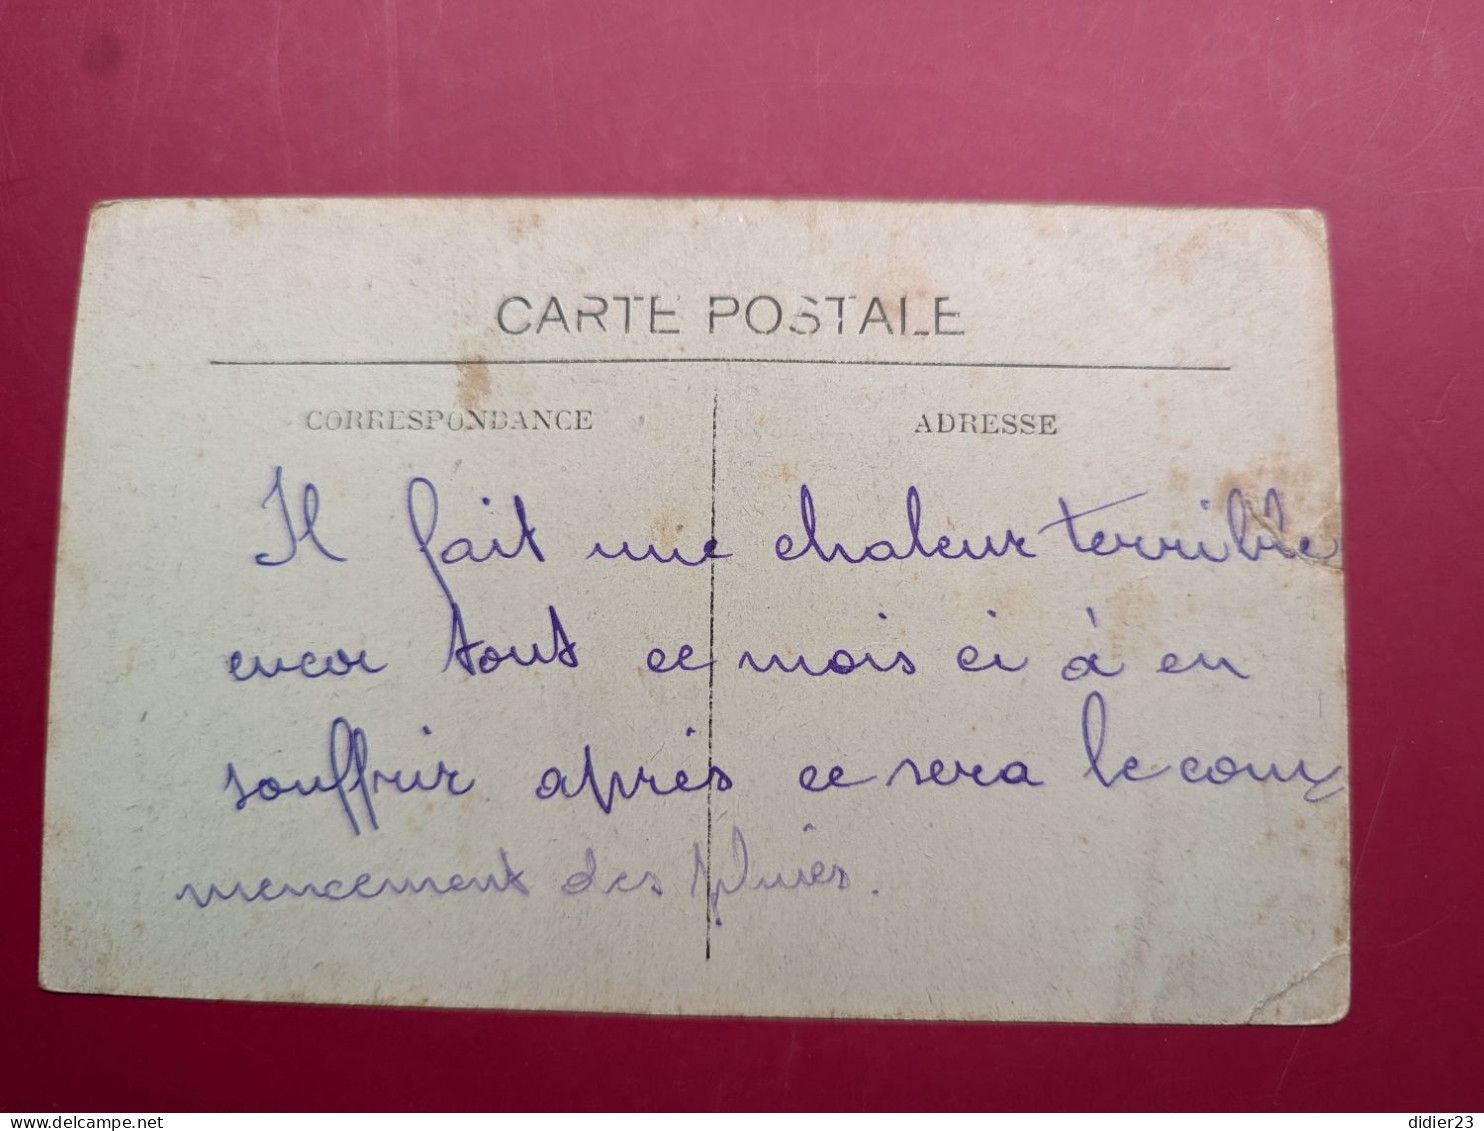 CARTE POSTALE
CORRESPONDANCE ADRESSE
Il fait une chaleur terrible
encor tout ce mois ci à en
souffrir après ce sera le com
mencement des pluies.
delcampe.net
didier23